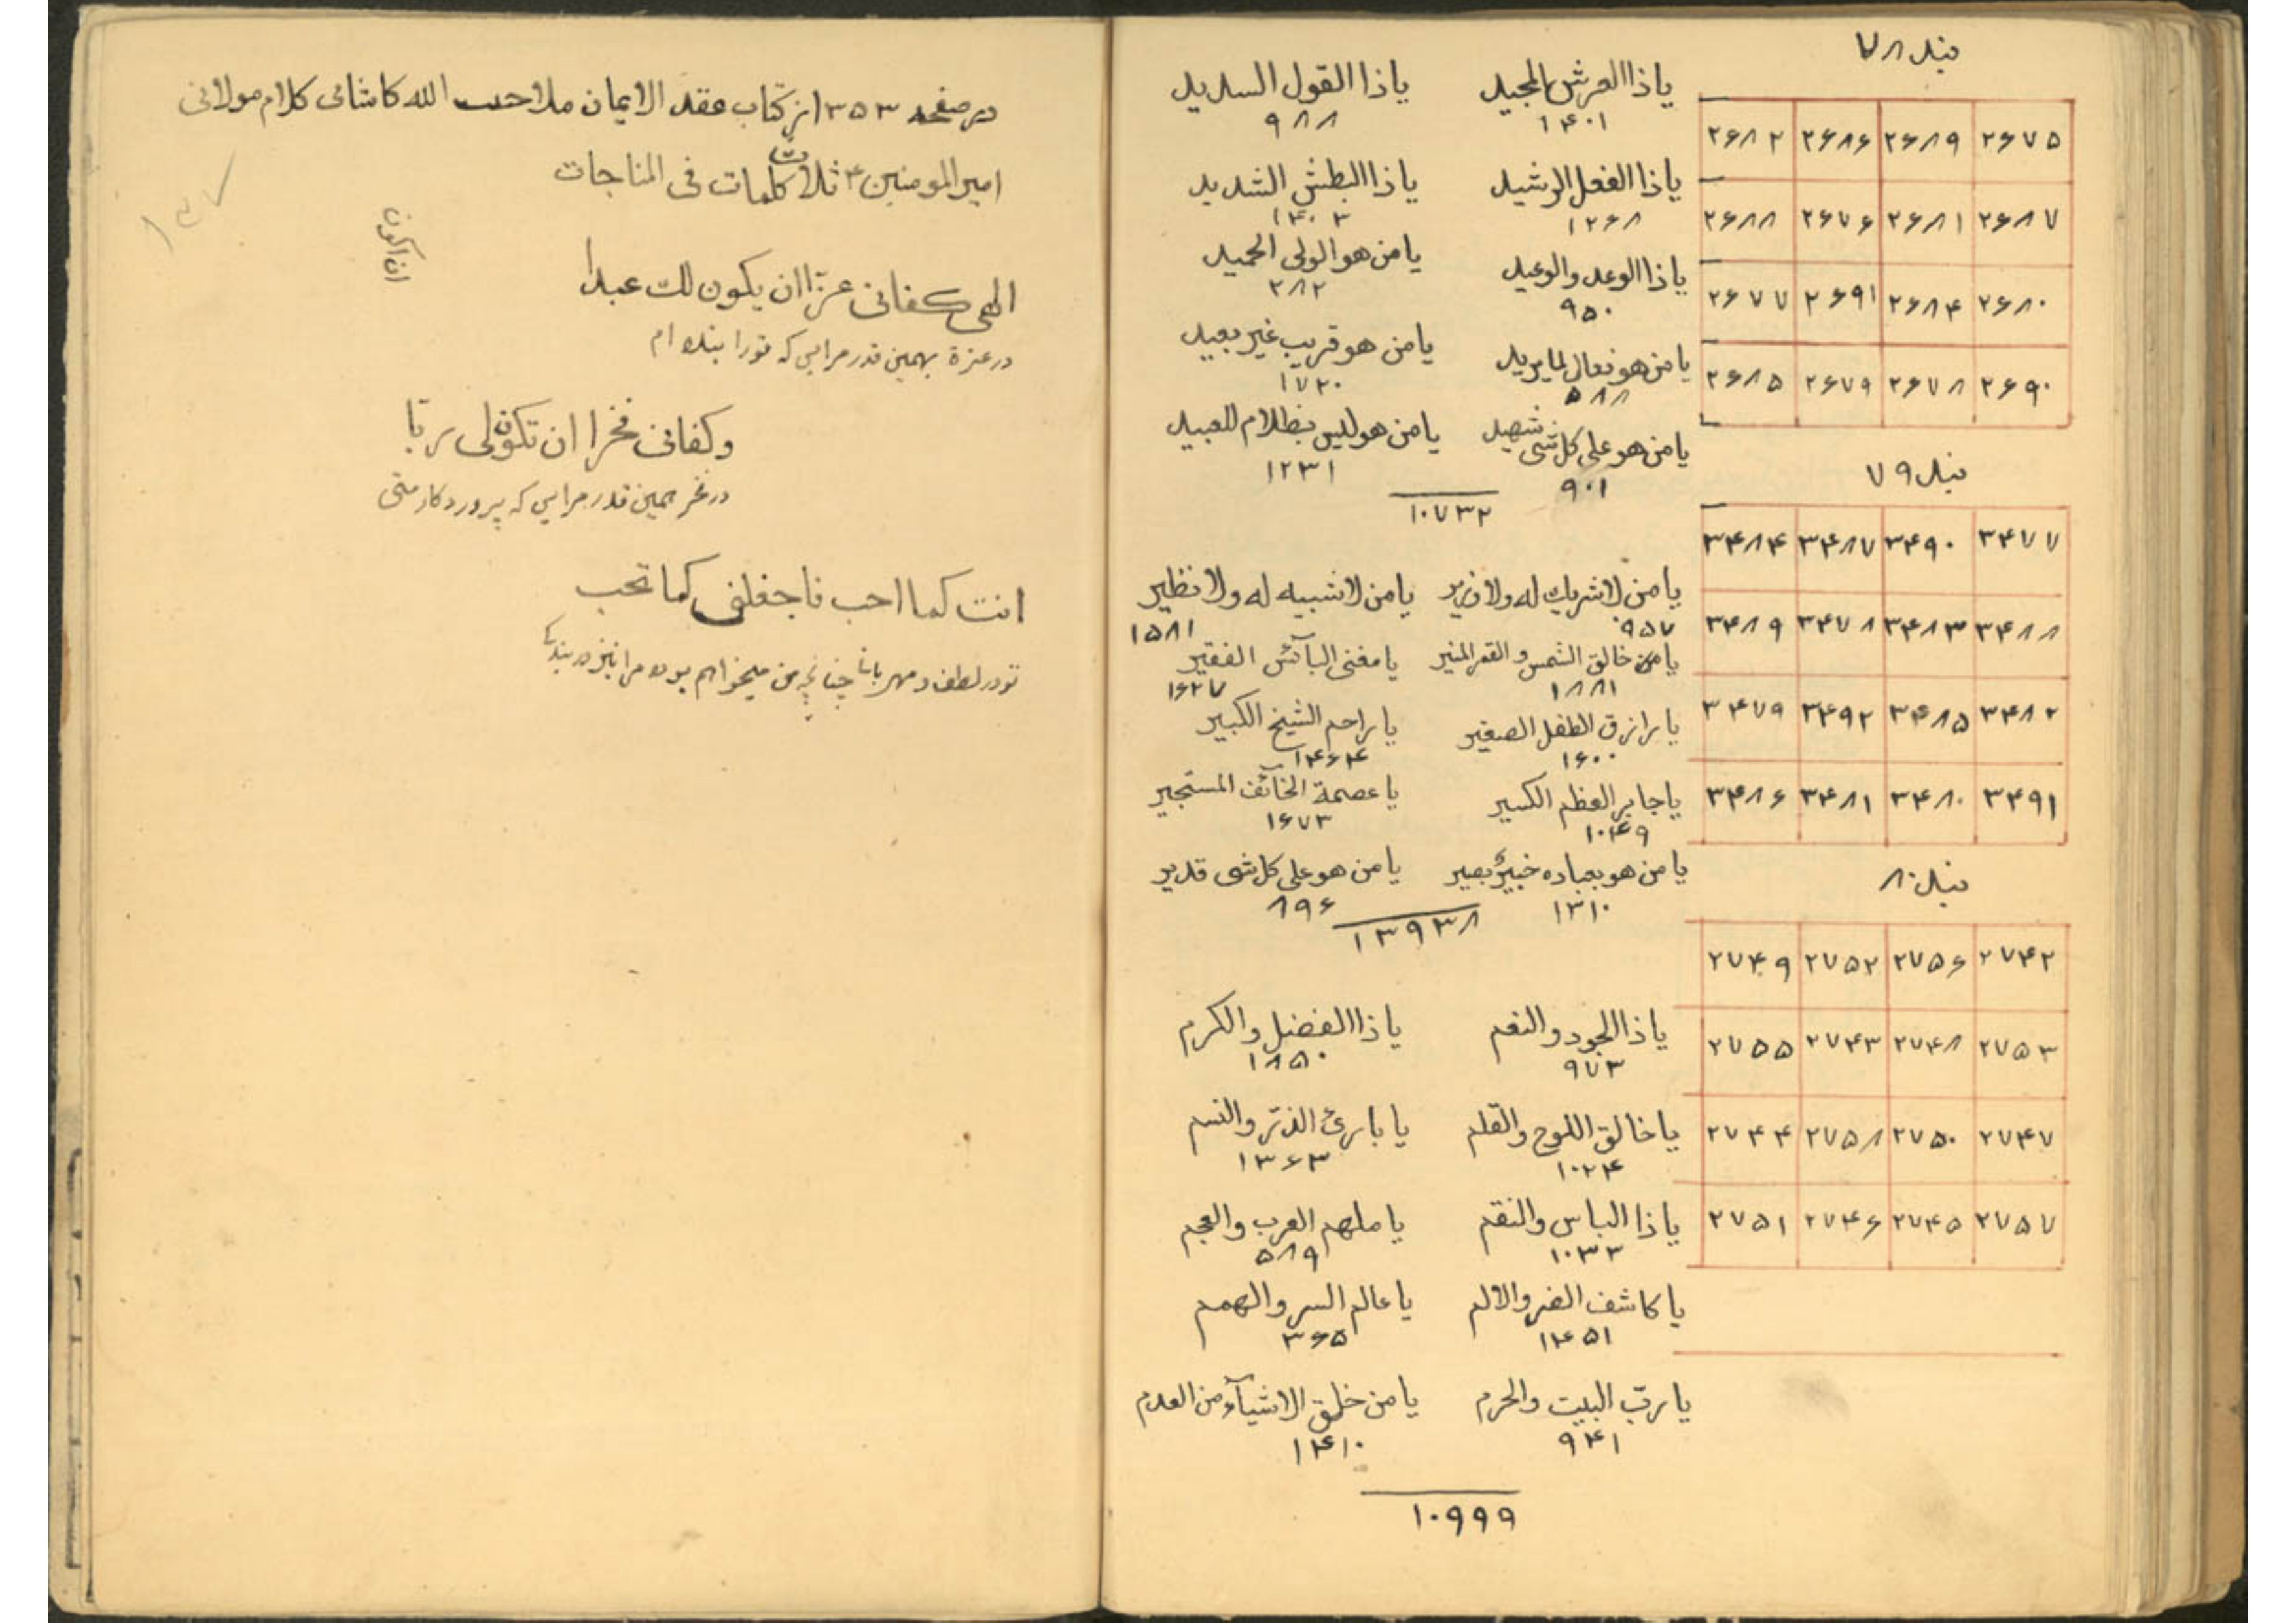 بند ۷۸
۲۶۸۲ ۲۶۸۶ ۲۶۸۹ ۲۶۷۵
۲۶۸۸ ۲۶۷۶ ۲۶۸۱ ۲۶۸۷
۲۶۷۷ ۲۶۹۱ ۲۶۸۴ ۲۶۸۰
۲۶۸۵ ۲۶۷۹ ۲۶۷۸ ۲۶۹۰
بند ۷۹
۳۴۸۴ ۳۴۸۷ ۳۴۹۰ ۳۴۷۷
۳۴۸۹ ۳۴۷۸ ۳۴۸۳ ۳۴۸۸
۳۴۷۹ ۳۴۹۲ ۳۴۸۵ ۳۴۸۲
۳۴۸۶ ۳۴۸۱ ۳۴۸۰ ۳۴۹۱
بند ۸۰
۲۷۴۹ ۲۷۵۲ ۲۷۵۶ ۲۷۴۲
۲۷۵۵ ۲۷۴۳ ۲۷۴۸ ۲۷۵۳
۲۷۴۴ ۲۷۵۸ ۲۷۵۰ ۲۷۴۷
۲۷۵۱ ۲۷۴۶ ۲۷۴۵ ۲۷۵۷
یا ذا العرش المجید یا ذا القول السدید
۱۴۰۱ ۹۸۸
یا ذا الفعل الرشید یا ذا البطش الشدید
۱۲۶۸ ۱۴۰۳
یا ذا الوعد والوعید یا من هو الولی الحمید
۹۵۰ ۲۸۲
یا من هو فعال لما یرید یا من هو قریب غیر بعید
۵۸۸ ۱۷۲۰
یا من هو علی کل شی شهید یا من هو لیس بظلام للعبید
۹۰۱ ۱۲۳۱
۱۰۷۳۲
یا من لا شریك له ولا وزیر یا من لا شبیه له ولا نظیر
۹۵۷ ۱۵۸۱
یا من خالق الشمس و القمر المنیر یا مغنی البآئس الفقیر
۱۸۸۱ ۱۶۲۷
یا رازق الطفل الصغیر یا راحم الشیخ الکبیر
۱۶۰۰ ۱۴۶۴
یا جابر العظم الکسیر یا عصمة الخآئف المستجیر
۱۰۴۹ ۱۶۷۳
یا من هو بعباده خبیر بصیر یا من هو علی کل شی قدیر
۱۳۱۰ ۸۹۶
۱۳۹۳۸
یا ذا الجود والنعم یا ذا الفضل والکرم
۹۷۳ ۱۸۵۰
یا خالق اللوح والقلم یا بارئ الذّر والنسم
۱۰۲۴ ۱۳۶۳
یا ذا الباس والنقم یا ملهم العرب والعجم
۱۰۳۳ ۵۸۹
یا کاشف الضر والالم یا عالم السر والهمم
۱۴۵۱ ۳۶۵
یا ربّ البیت والحرم یا من خلق الاشیآء من العدم
۹۴۱ ۱۴۱۰
۱۰۹۹۹
در صفحه ۳۵۳ از کتاب عقد الایمان ملا حبیب الله کاشانی کلام مولانی
امیر المومنین ۴ ثلاث کلمات فی المناجات
۱۳۷
ان اکون
الهی کفانی عزّا ان یکون لك عبدا
در عزة بهمین قدر مرا بس که تو را بنده ام
وکفانی فخرا ان تکون لی ربّا
در فخر همین قدر مرا بس که پروردکار منی
انت کما احب فاجعلنی کما تحب
تو در لطف و مهربانی چنانچه من میخواهم بوده مرا نیز در بندکی